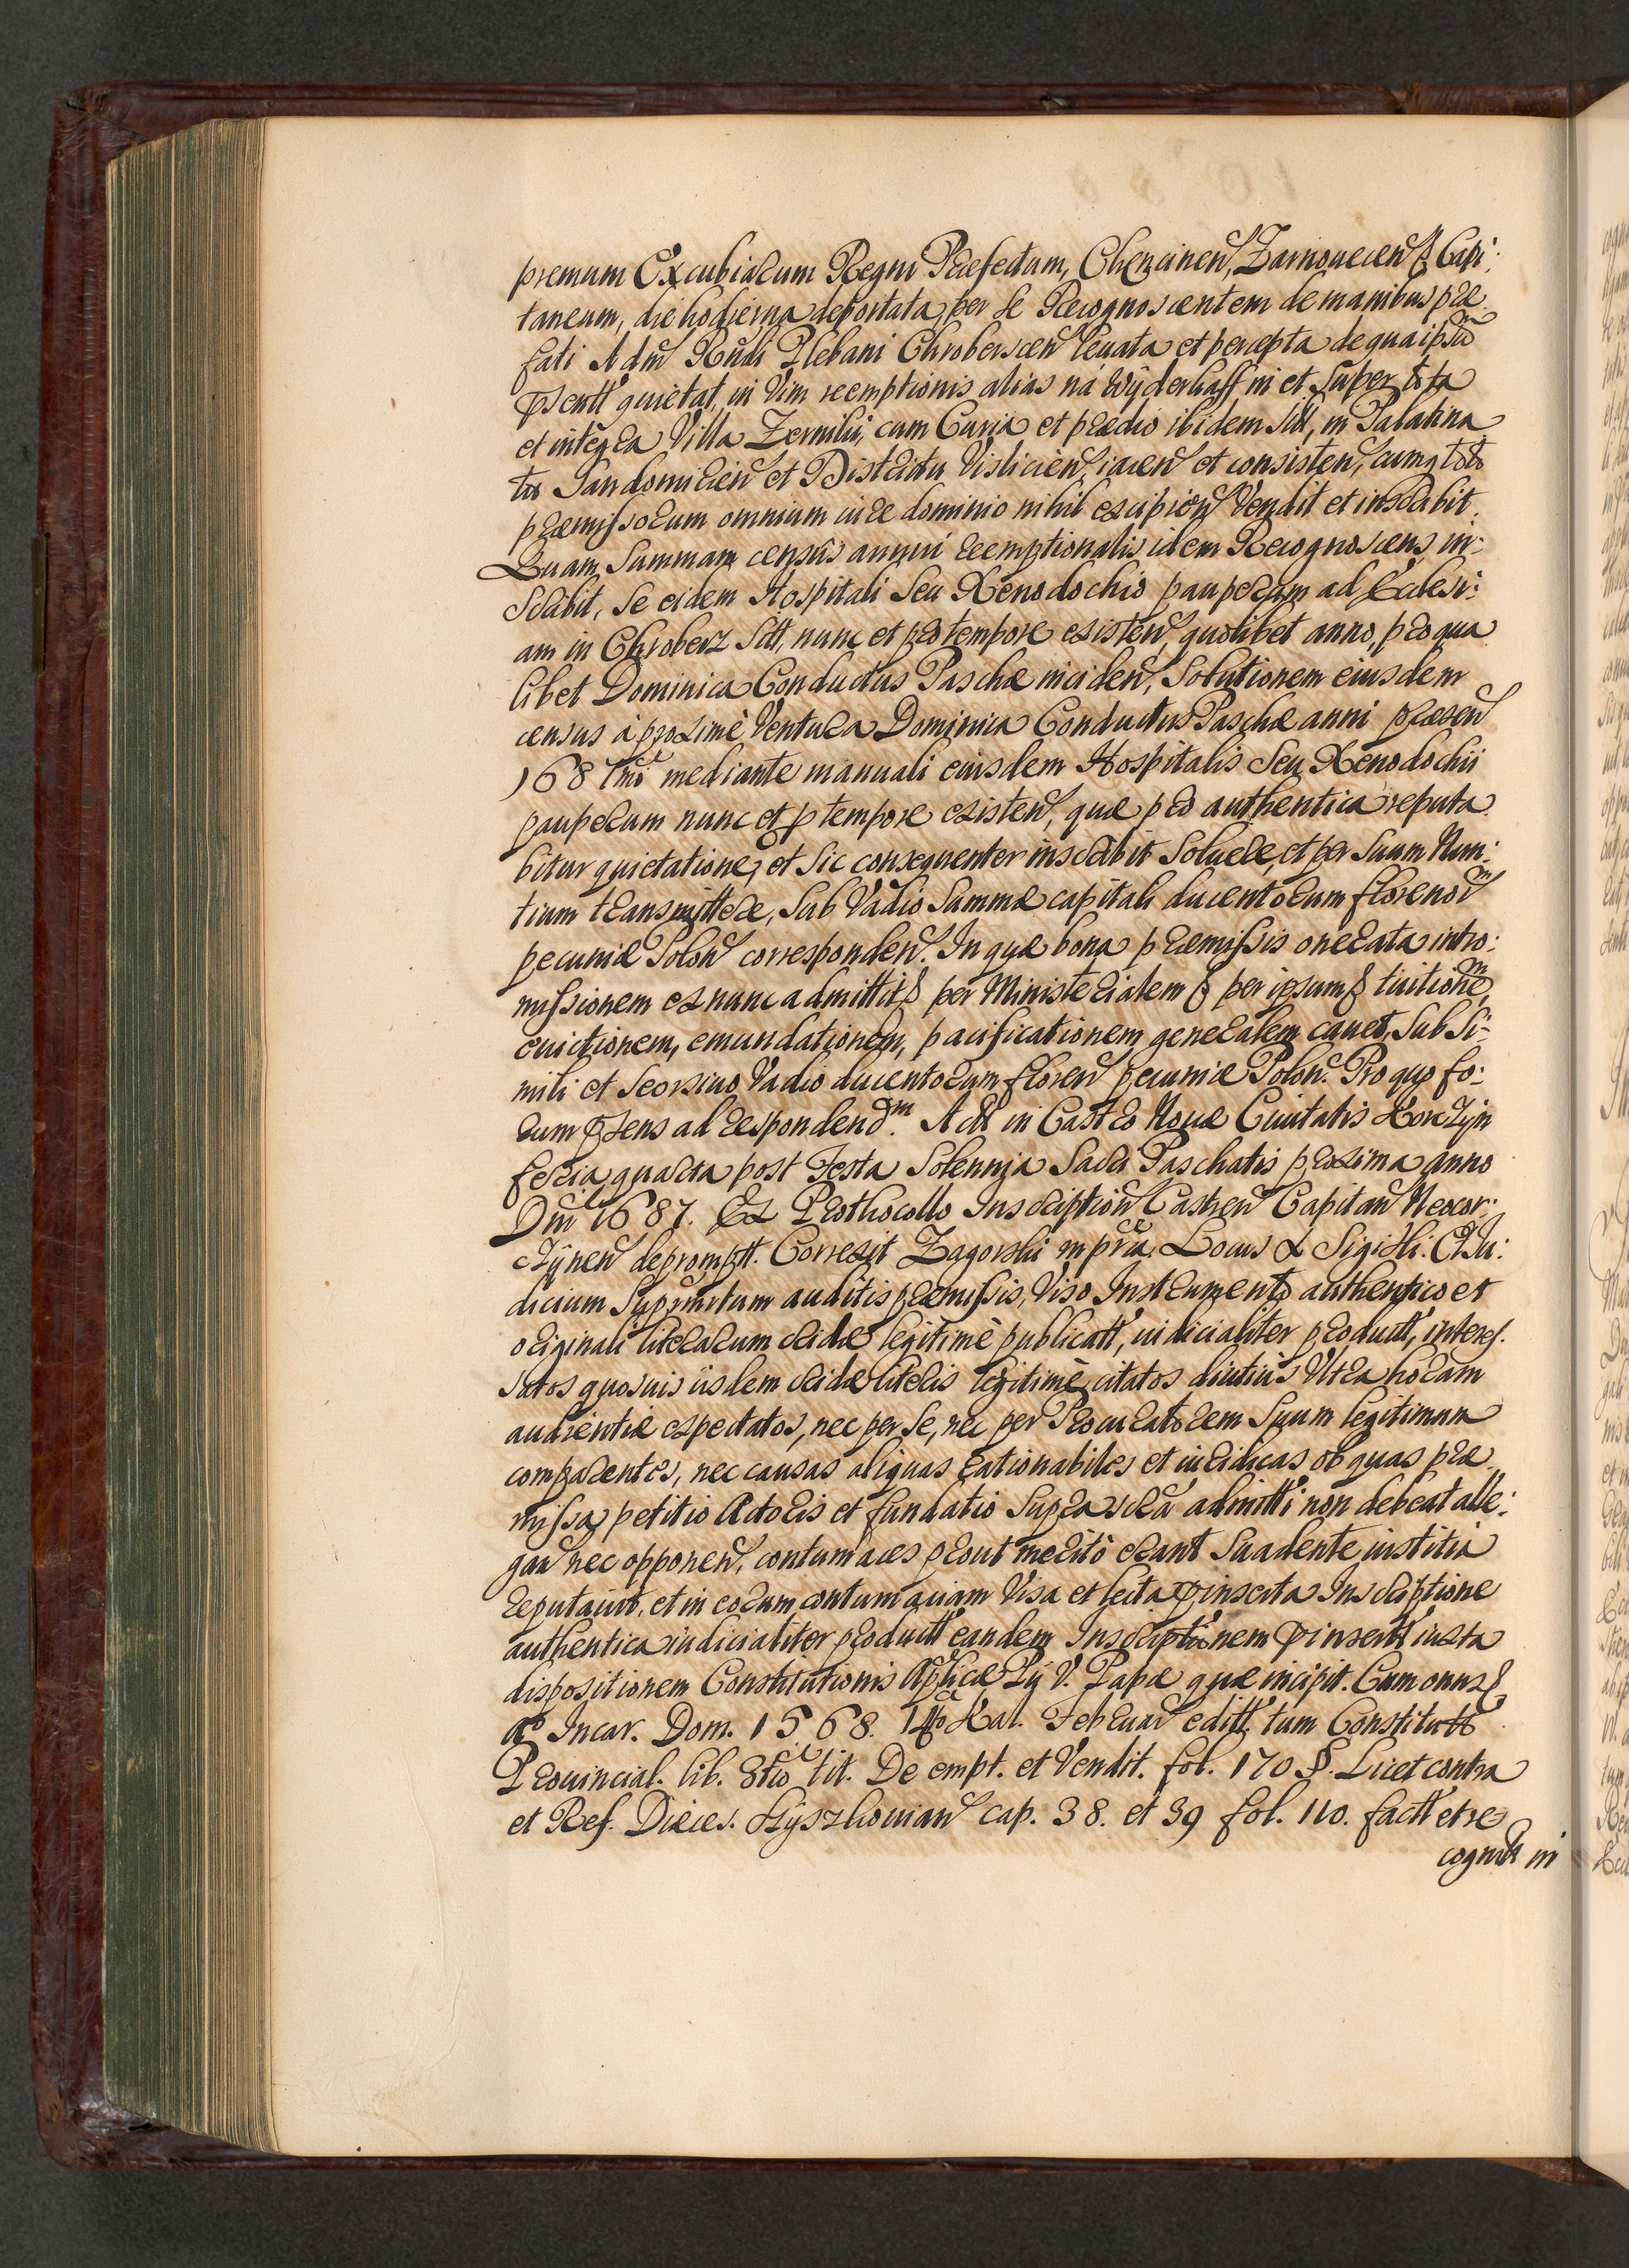 premum Excubiarum Regni Præfectum, Chęncinen̄, Zarnovecen̄ & Capi:
taneum, die hodierna deportata, per se Recognoscentem de manibus præ
fati Adm̄ Rndi Plebani Chroberscen̄ levata et percepta de qua ipsū
p̄sentt quietat, in vim reemptionis alias ná wÿderkaff in et super tota
et integra Villa Zermiki, cum Curia et prædio ibidem stt, in Palatina
tu Sandomirien̄ et Districtu Vislicien̄, iacen̄ et consisten̄, cumq̨ toto
præmissorum omnium iure dominio nihil excipien̄ Vendit et inscrabit.
Quam Summam census annui reemptionalis idem Recognoscens in:
scrabit, se eidem Hospitali seu Xenodochio pauperum ad Ecclesi:
am in Chroberz stt, nunc et pro tempore existen̄, quolibet anno, pro qua
libet Dominica Conductus Paschæ inciden̄, Solutionem eiusdem
census à proximè Ventura Dominica Conductus Paschæ anni præsen̄
1687mi mediante manuali eiusdem Hospitalis seu Xenodochii
pauperum nunc et p tempore existen̄, quæ pro authentica reputa
bitur quietatione, et sic consequenter inscrabit Soluere, et per suum Nun:
tium transmittere, sub Vadio Summæ capitali ducentorum florenor̄
pecuniæ Polon̄ corresponden̄. In quæ bona præmissis onerata intro:
missionem ex nunc admittit & per Ministerialem & per ipsum & tuitionē
evictionem, emundationem, pacificationem generalem cavet, sub si:
mili et seorsivo Vadio ducentorum floren̄ pecuniæ Polon̄. Pro quo fo:
rum p̄sens ad respondend.m Act in Castro Novæ Civitatis Korczÿn
feria quarta post Festa Solennia Sacri Paschatis proxima anno
Dni 1687. Ex Prothocollo Inscription̄ Castren̄ Capitan̄ Neocor:
czÿnen̄ deprompt. Correxit Zagorski mprā. Locus L Sigilli. Et Iu:
dicium Supra[scri]ptum auditis præmissis, Viso Instrumento authentico et
originali literarum cridæ legitimè publicatt, iudicialiter productt, interes.
satos quosuis iisdem cridæ literis legitimè citatos diutiùs Vltra horam
audientiæ expectatos, nec per se, nec per Procuratorem suum legitimum
comparentes, nec causas aliquas rationabiles et iuridicas ob quas præ
missa petitio Actoris et fundatio suprascrā admitti non debeat alle:
gan̄ nec opponen̄, contumaces prout meritò erant suadente iustitia
reputavit, et in eorum contumaciam Visa et lecta p̄inserta Inscriptione
authentica iudicialiter productt eandem Inscriptionem p̄insertt iuxta
dispositionem Constitutionis Aplicæ Pij V. Papæ quæ incipit. Cum onus &
Ao Incar. Dom. 1568. 14to Kal. Februar̄ editt, tum Constitutt
Provincial. lib. 3tio tit. De empt. et Vendit. fol. 170 §. Licet contra
et Ref. Diæces. Szyszkovian̄ cap. 38. et 39 fol. 110. factt et re
cognitt in